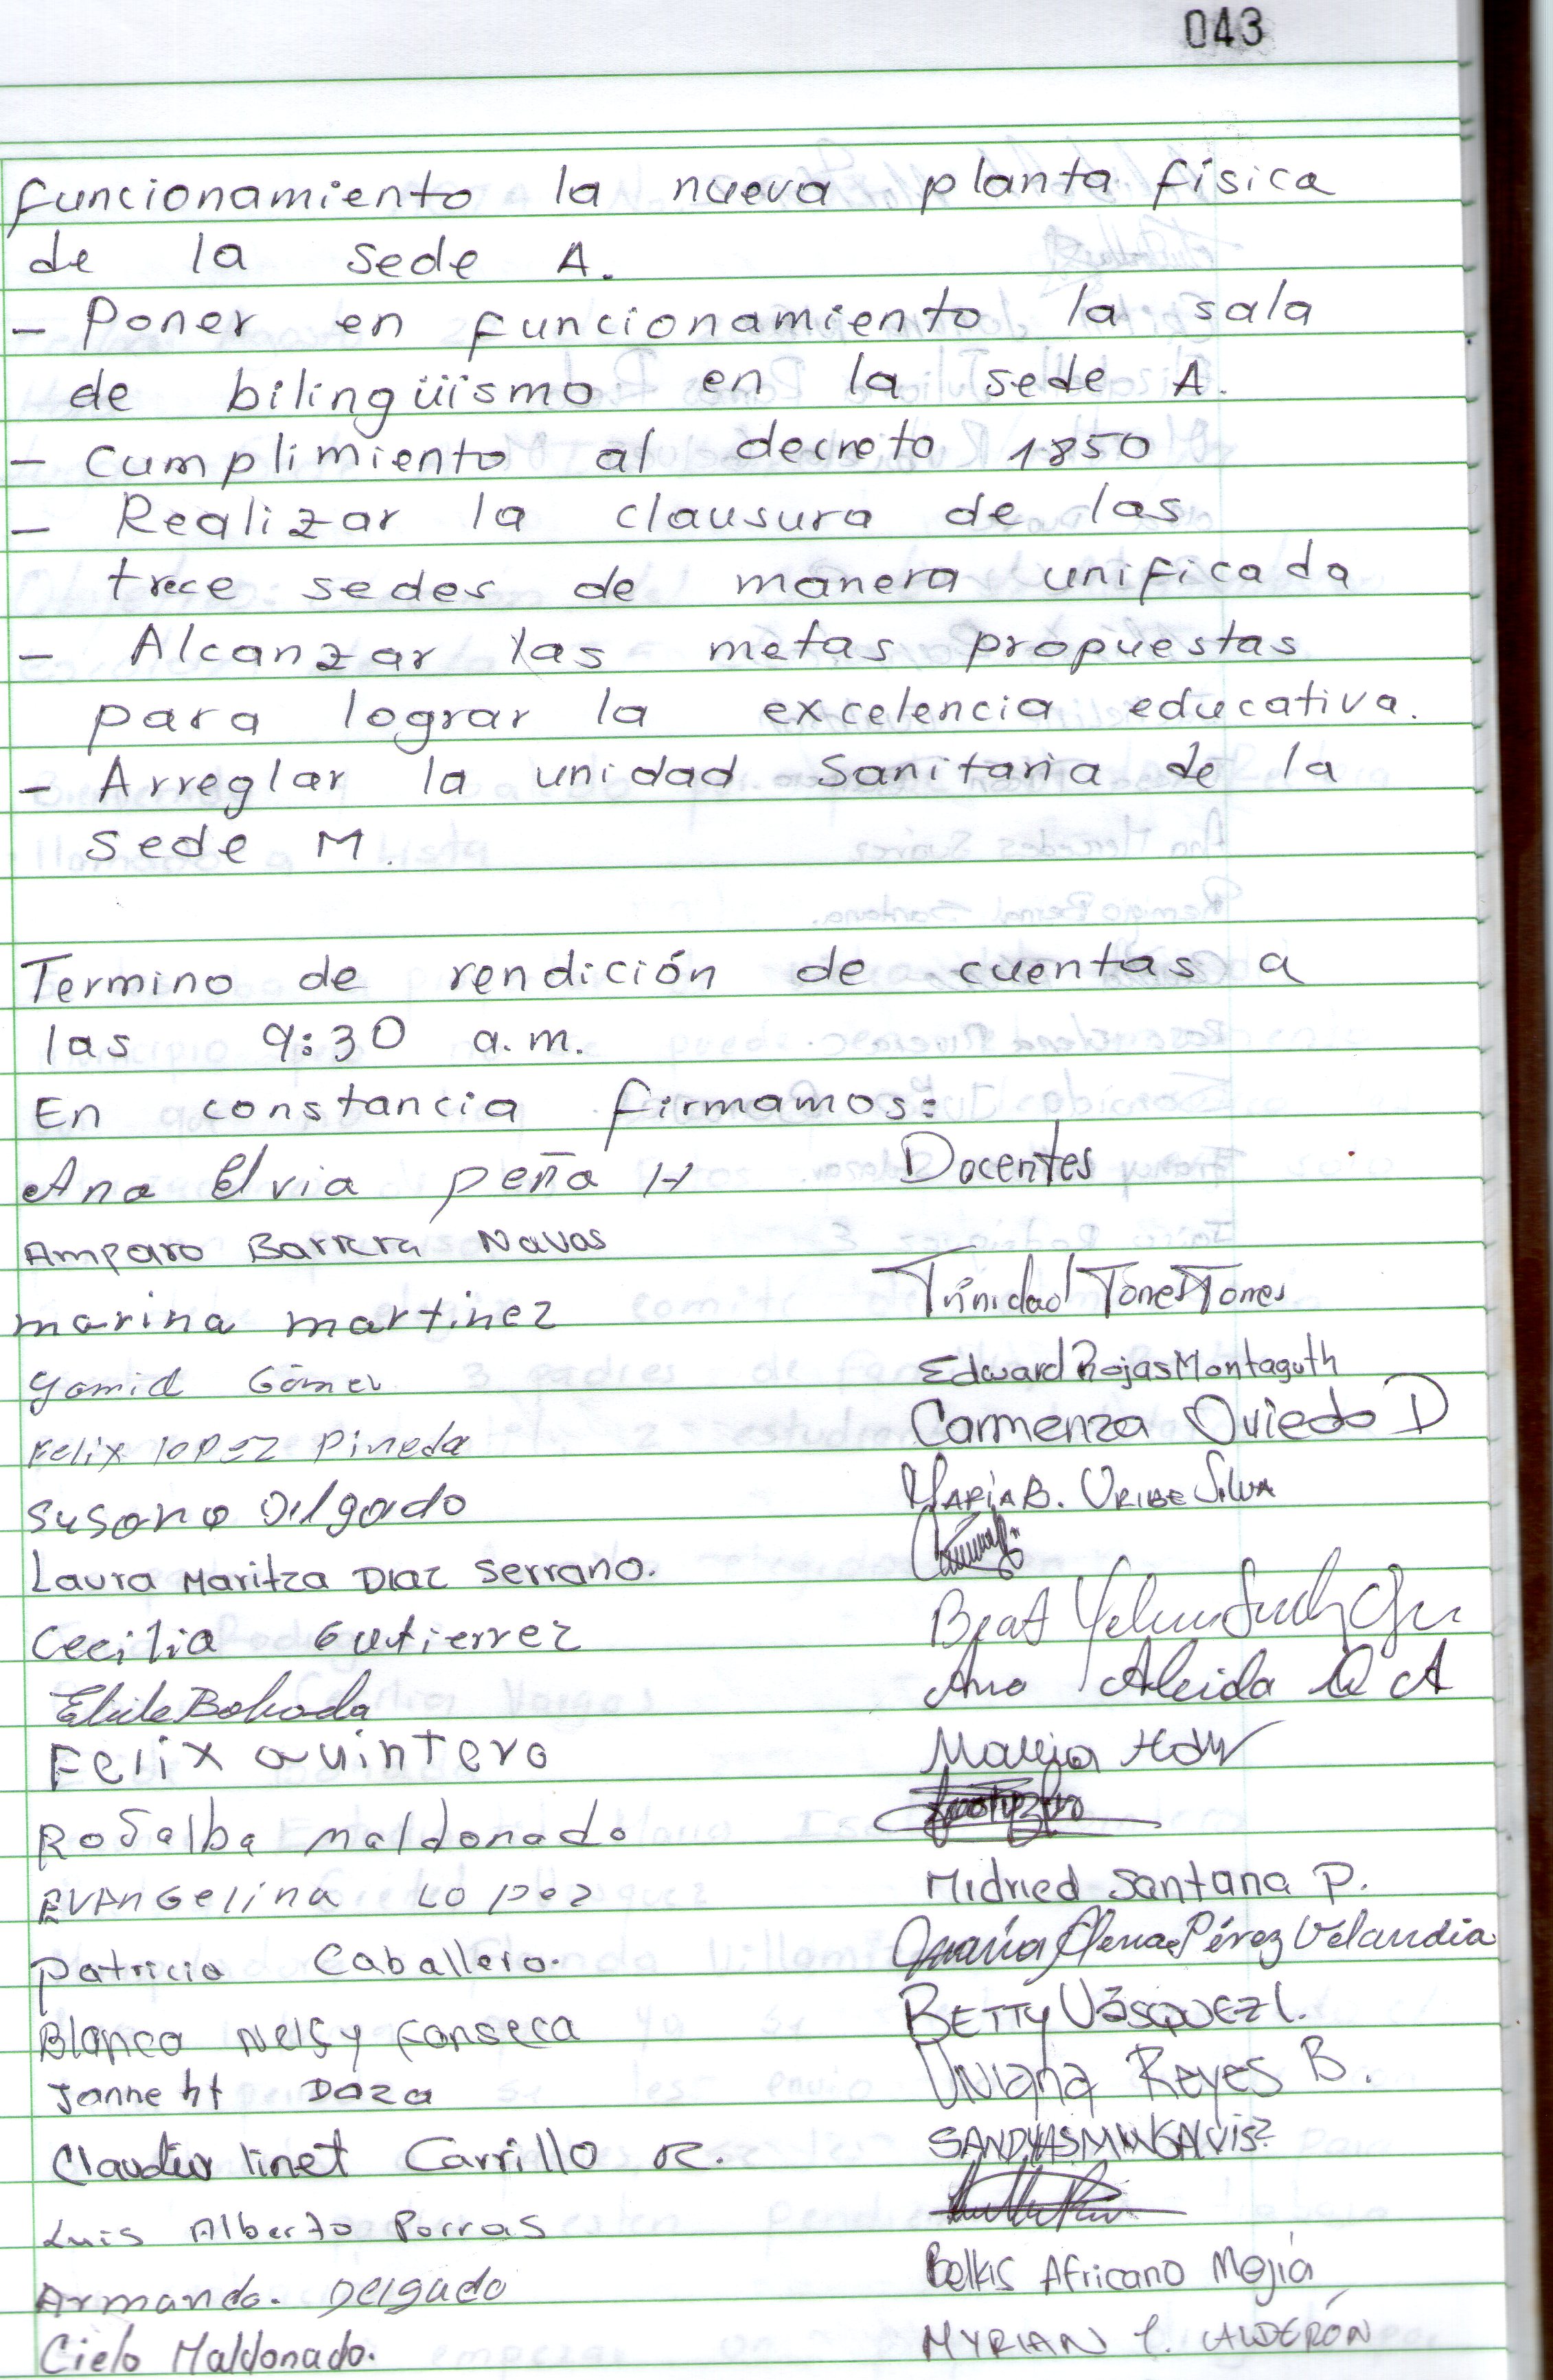 043
funcionamiento la nueva planta física
de la sede A.
- Poner en funcionamiento la sala
de bilingüismo en la sede A.
- Cumplimiento al decreto 1850
- Realizar la clausura de las
trece sedes de manera unificada
- Alcanzar las metas propuestas
para lograr la excelencia educativa.
- Arreglar la unidad Sanitaria de la
sede M.
Termino de rendición de cuentas a
las 9:30 a.m.
En constancia firmamos:
Ana Elvia peña H
Amparo Barrera Navas
marina martinez
Yamid Gómez
Felix lopez Pineda
Susana Delgado
Laura Maritza Diaz Serrano.
Cecilia Gutierrez
Felix Quintero
Rosalba Maldonado
Evangelina Lopez
Patricia Caballero.
Blanca Nelsy Fonseca
Janneht Daza
Claudia linet Carrillo R.
Luis Alberto Porras
Armando. Delgado
Cielo Maldonado.
Docentes
Trinidad Torres Torres
Edward Rojas Montaguth
Carmenza Oviedo D
María B. Uribe Silva
Ana Aleida
Midried Santana P.
María Elena Pérez Velandia
Betty Vásquez l.
Viviana Reyes B.
Belkis Africano Mejía
MYRIAN C. CALDERÓN